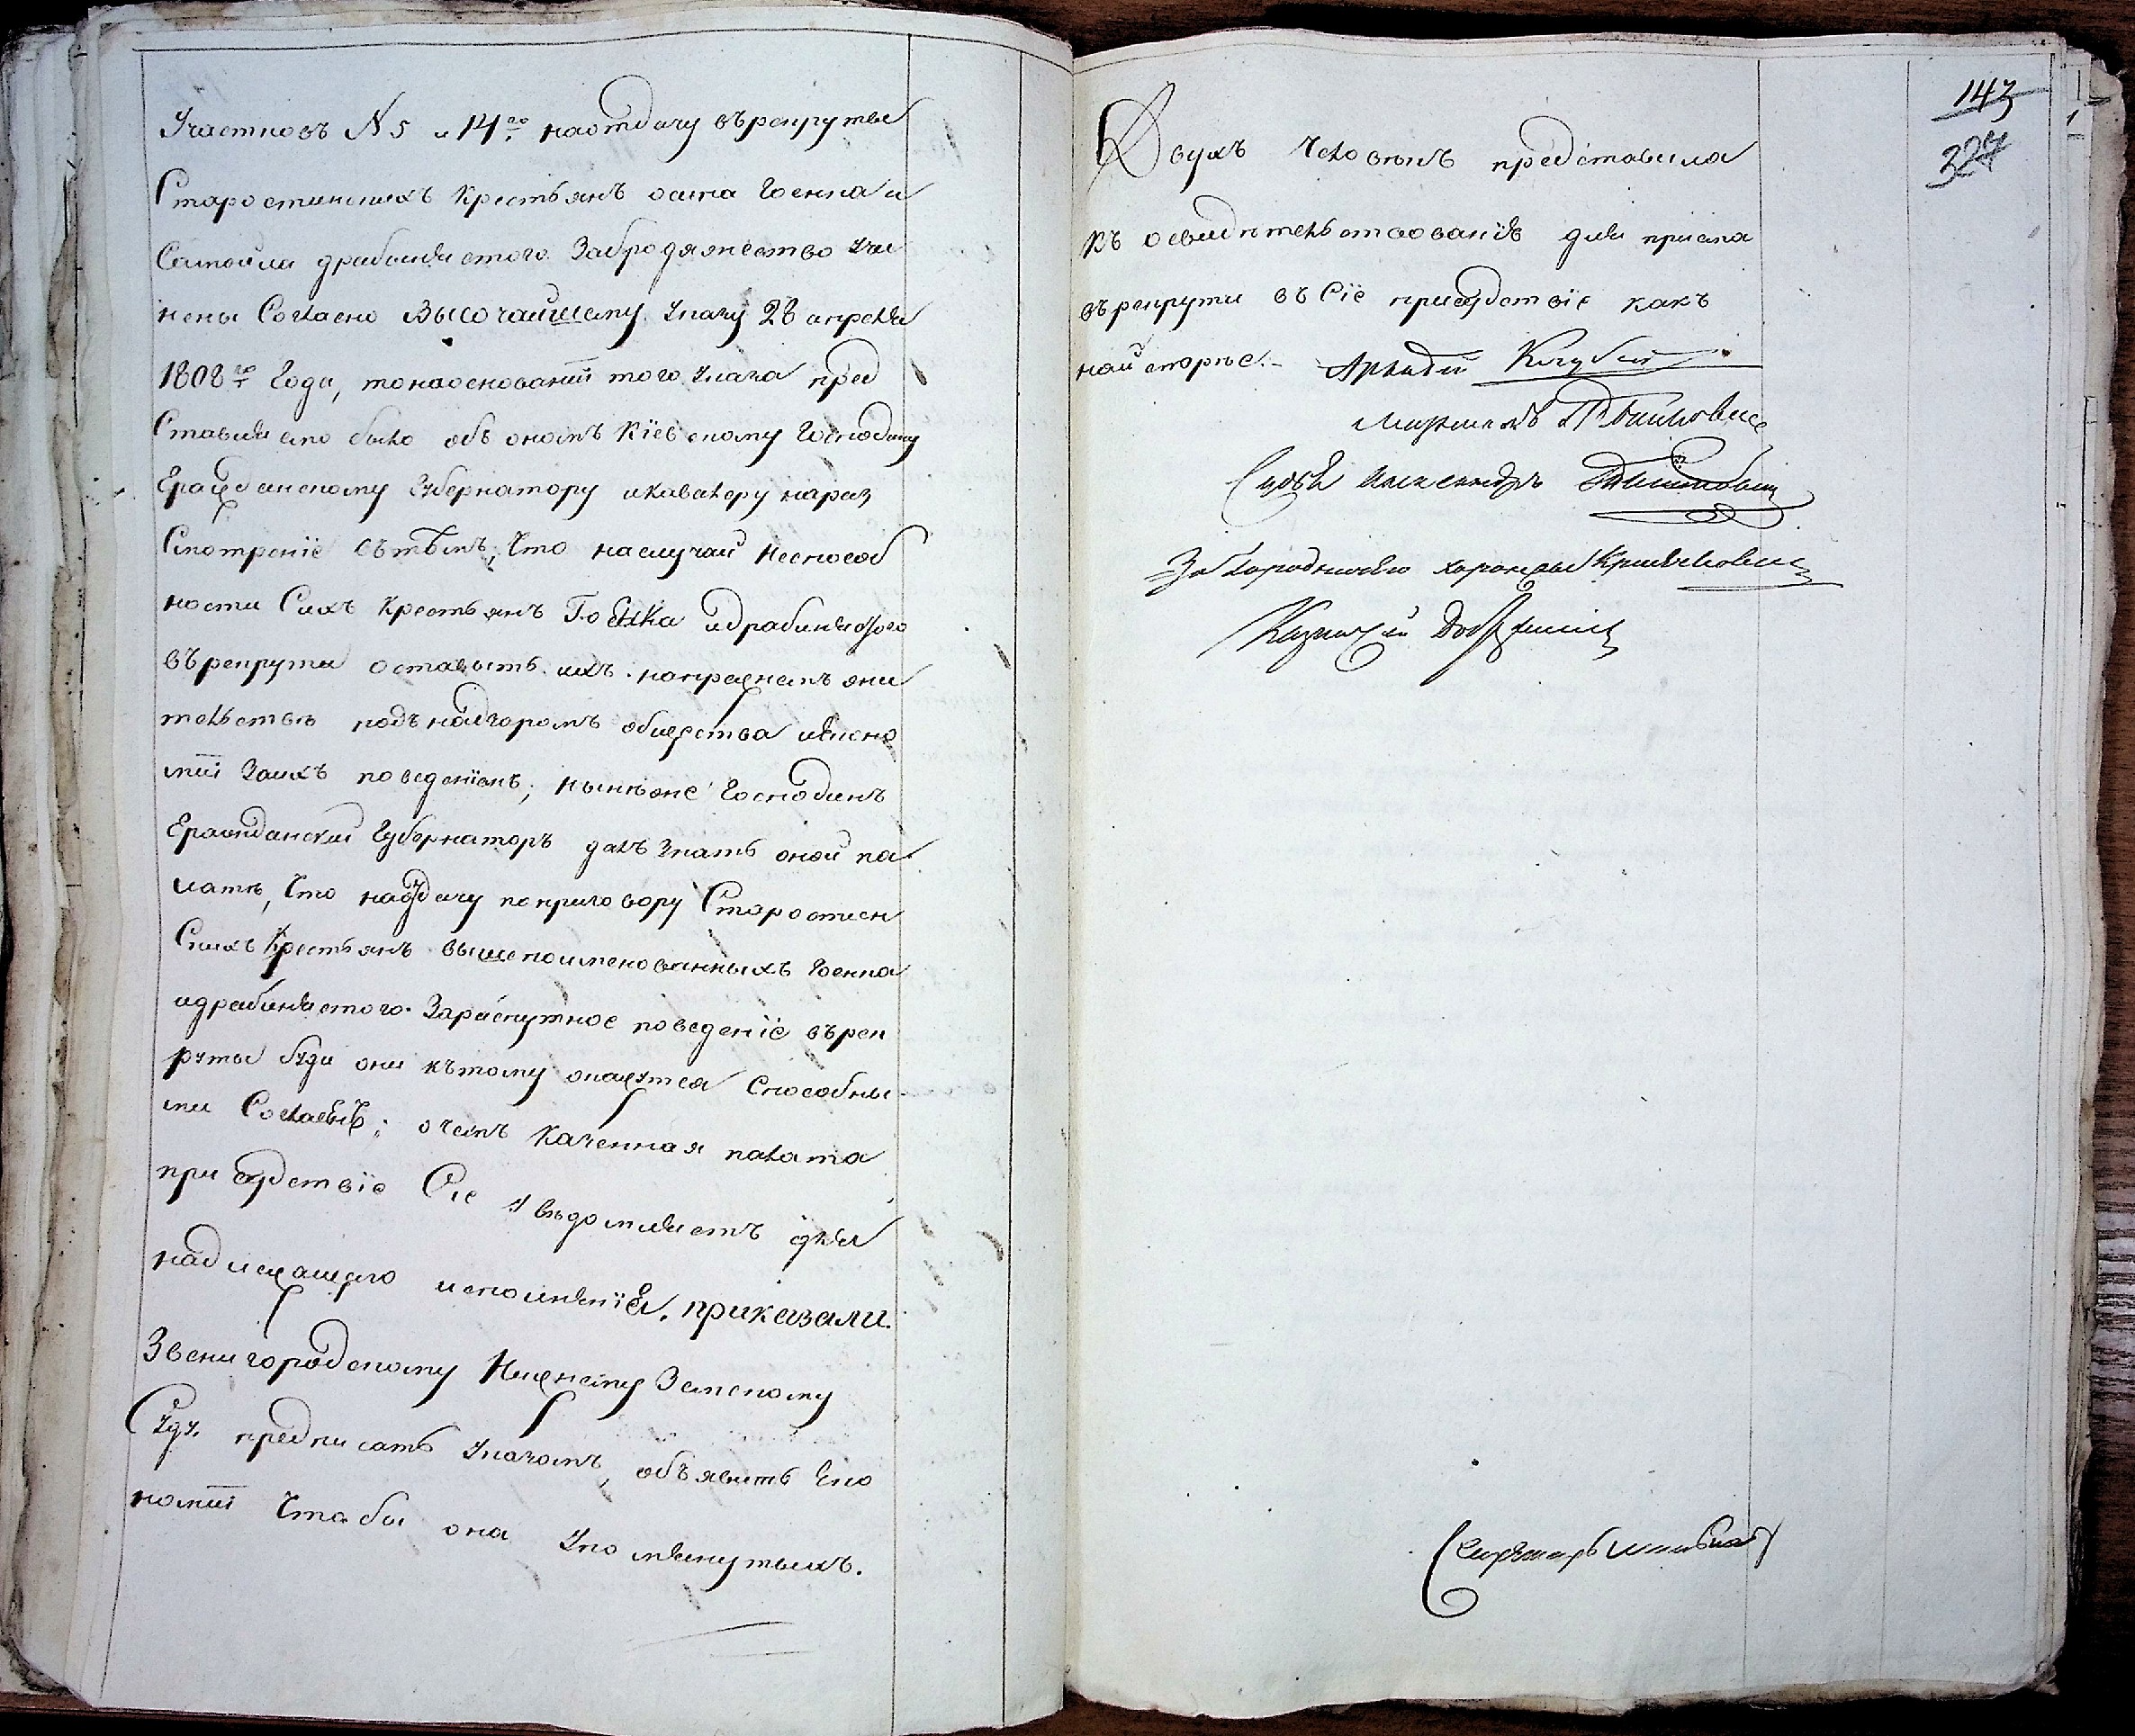 Участковъ № 5 и 14го наотдачу върекруты
Старостинскихъ крестьянъ осипа Гоенка и
Самойла драбинястого Забродяжество учи
нены Согласно Высочайшему Указу 28 апреля
1808го Года, тонаоснованіи того Указа пред
Ставляемо было объ ономъ Кіевскому Господину
Гражданскому Губернатору икавалеру нараз
Смотреніе сътѣмъ, Что наслучай неспособ
ности Сихъ крестьянъ Гоенка идрабинястого
върекруты оставить ихъ напрежнемъ жи
тельствѣ подънадзоромъ общества иЭконо
міи Заихъ поведеніемъ; нынѣже Господинъ
Гражданскій Губернаторъ далъ знать оной па
латѣ, Что наотдачу поприговору Старостин
Скихъ Крестьянъ вышепоименованныхъ Гоенка
идрабинястого Зараспутное поведеніе върек
руты буди они кътому окажутся Способны
ми Согласенъ; очемъ Казенная палата
присудствіе Сіе увѣдомляетъ для
надлежащего исполненія. приказали.
Звенигородскому Нижнему Земскому
Суду предписать указомъ, объявить Эко
номіи Чтобы она упомянутыхъ.
143
327
Двухъ Человѣкъ представила
къ освидѣтельствованію для пріема
върекруты въ Сіе присудствіе какъ
найскорѣе.
Аркадій Кочубей
Судья Александръ
За Городничего хорунжы
Казначей
Секретарь